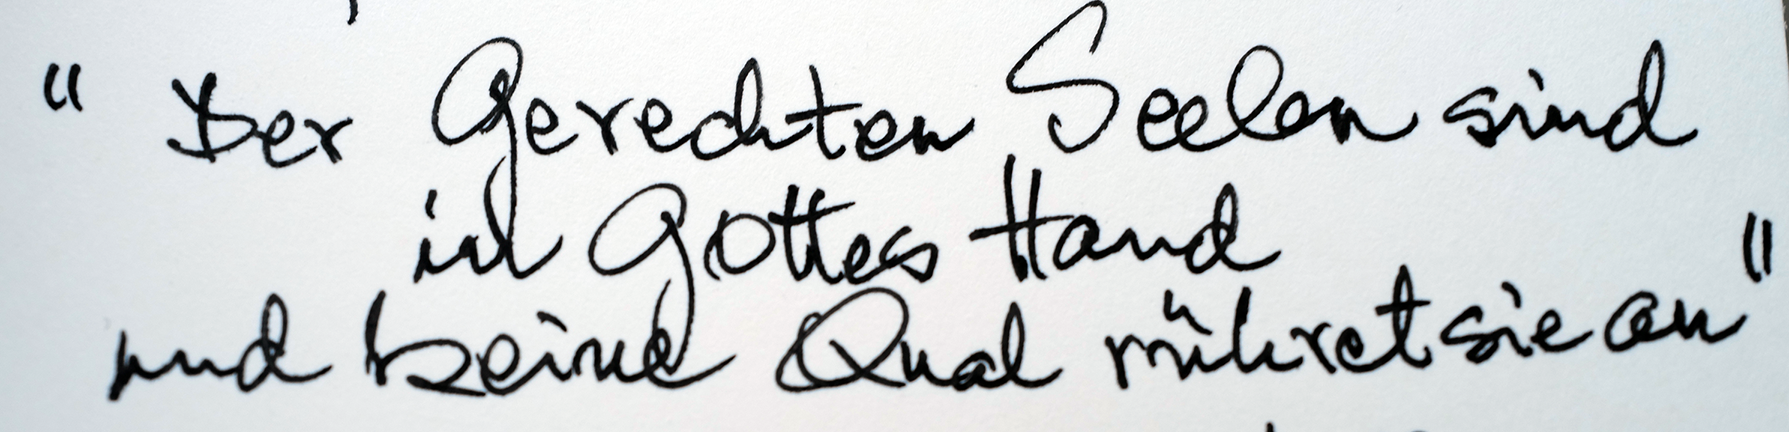 "Der Gerechten Seelen sind
in Gottes Hand
und keine Qual rühret sie an"